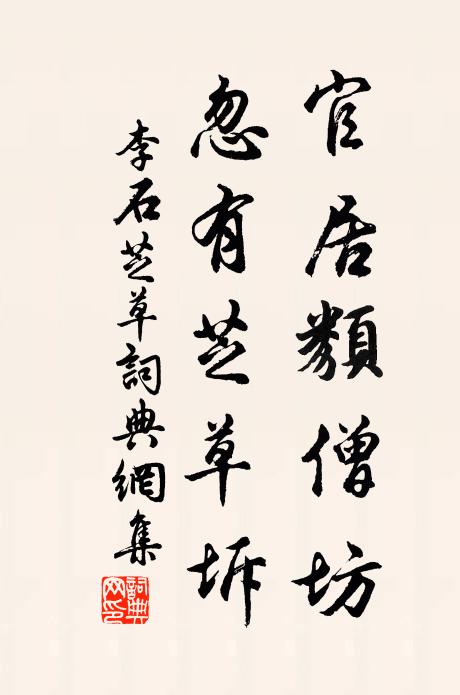 官居類僧坊
忽有芝草坼
李石芝草詞典網集
詞典網印